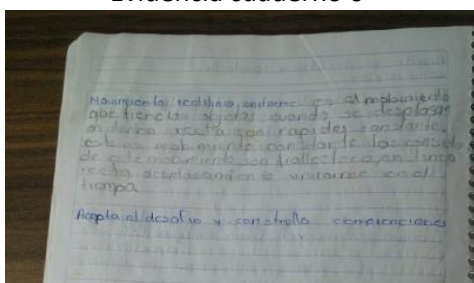 Movimiento rectilinio uniforme es el mobimiento
que tiene los objetos cuando se desplasan
en linea recta con rapides constante
este es mobimiento constante las
de este mobimiento son trallectoria en linea
recta desplasamiento uniforme en el
tiempo
Acepta el desafio y constrollo competenciones